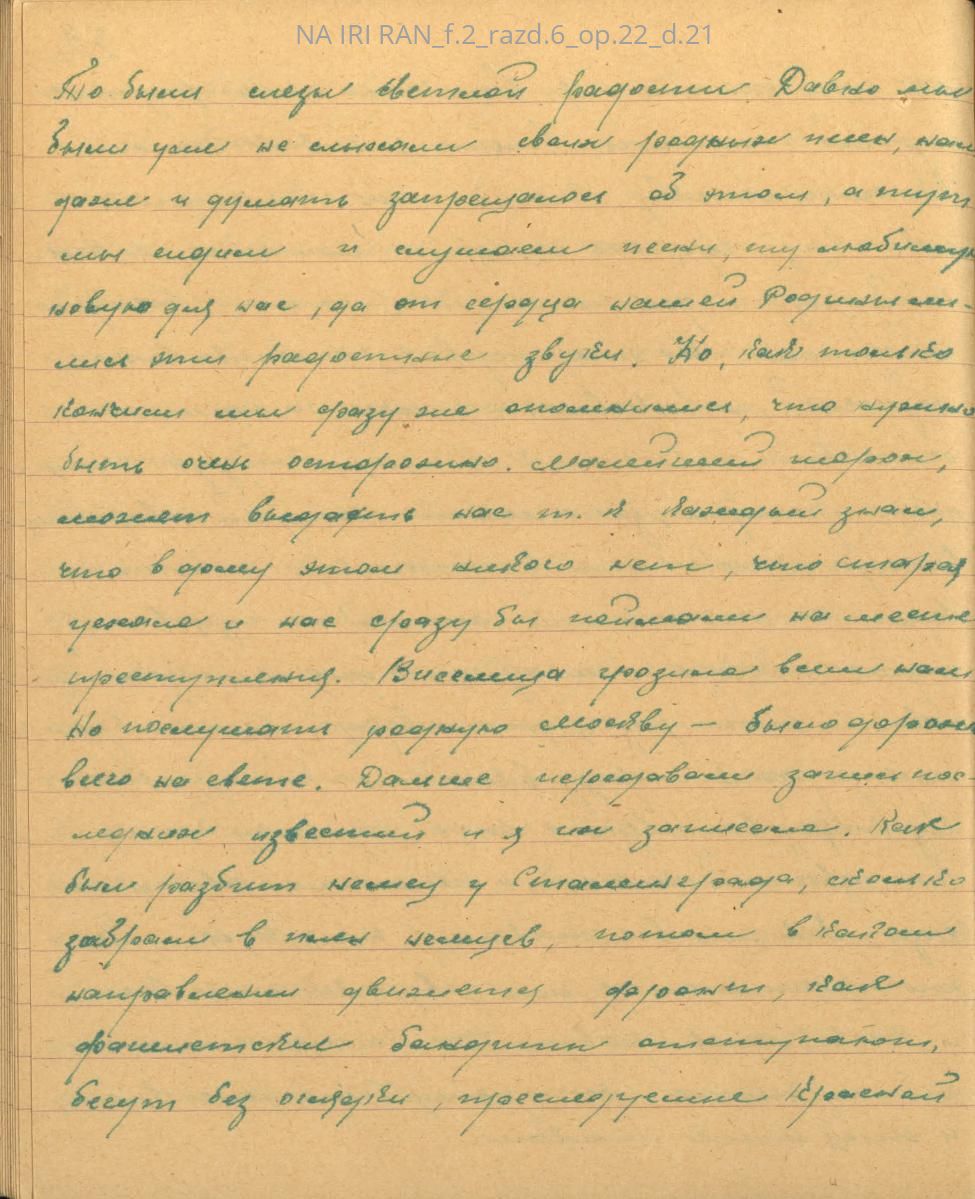 NA IRI RAN_f.2_razd.6_op.22_d.21
То были слезы светлой радости Давно мы
были уже не слыхали своих родных песен, нам
даже и думать запрещалось об этом, а тут
мы сидим и слушаем песни, ту любимую
новую для нас, да от сердца нашей Родины ли-
лись эти радостные звуки. Но, как только
кончили мы сразу же опомнились, что нужно
быть очень осторожно. Малейший шорох,
может выдать нас т. к каждый знал,
что в дому этом никого нет, что старая
уехала и нас сразу бы поймали на месте
преступления. Виселица грозила всем нам
Но послушать родную Москву – было дороже
всего на свете. Дальше передавали запись пос-
ледних известий и я их записала. Как
был разбит немец у Сталинграда, сколько
забрали в плен немцев, потом в каком
направлении движется фронт, как
фашистские бандиты отступают,
бегут без оглядки, преследуемые Красной